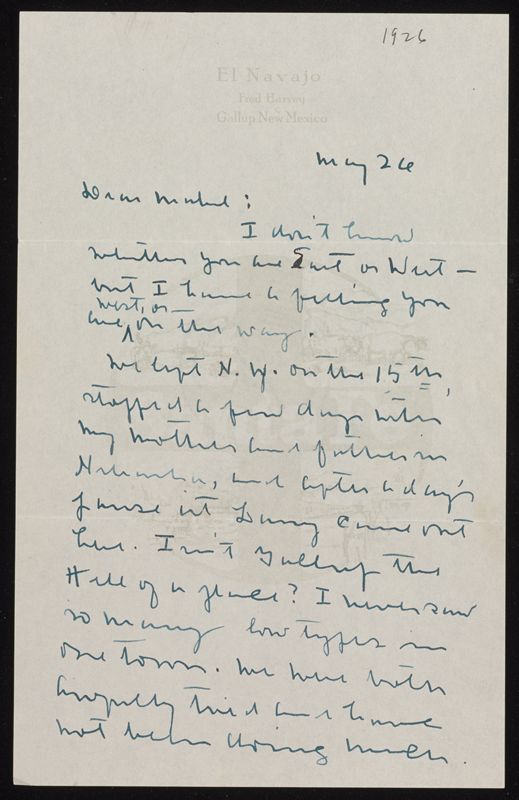 1926
El Navajo
Fred Harvey
Gallup New Mexico
May 26
Dear Mabel:
I don't know
whether you are East or West —
but I have a feeling you
west, or —
are, on the way.
We left N.Y. on the 15th,
stopped a few days with
my mother and father in
Nebraska, and after a day's
pause at Lamy came out
here. Isn't Gallup the
Hell of a place? I never saw
so many low types in
one town. We were both
awfully tired and have
not been doing much.